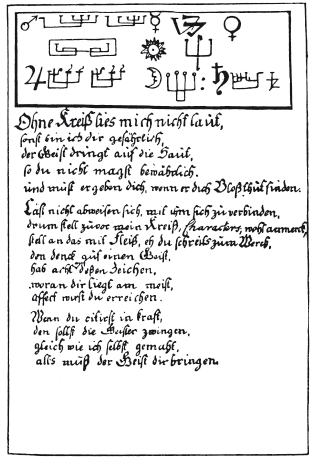 Ohne Kreiß lies mich nicht laut,
sonst bin ich dir gefährlich,
der Geist dringt auf die Haut,
so du nicht magst bewährlich.
und muß ergeben dich, wenn er dich Bloß thut finden.
Laß nicht abweisen sich, mit ihm sich zu verbinden,
drum stell zuvor mein Kreiß, Characters, wohl anmerck,
stell an das mit Fleiß, eh du schreitst zum Werck,
den denck auf einen Geist,
hab acht deßen Zeichen,
woran dir liegt am meist,
affect wirst du erreichen.
Wenn du citirst in kraft,
den sollst die Geister zwingen,
gleich wie ich selbst gemacht,
alls muß der Geist dir bringen.